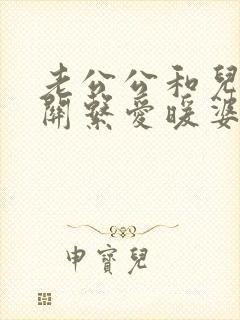 老公公和兒
關繫愛暖婆
申寶兒